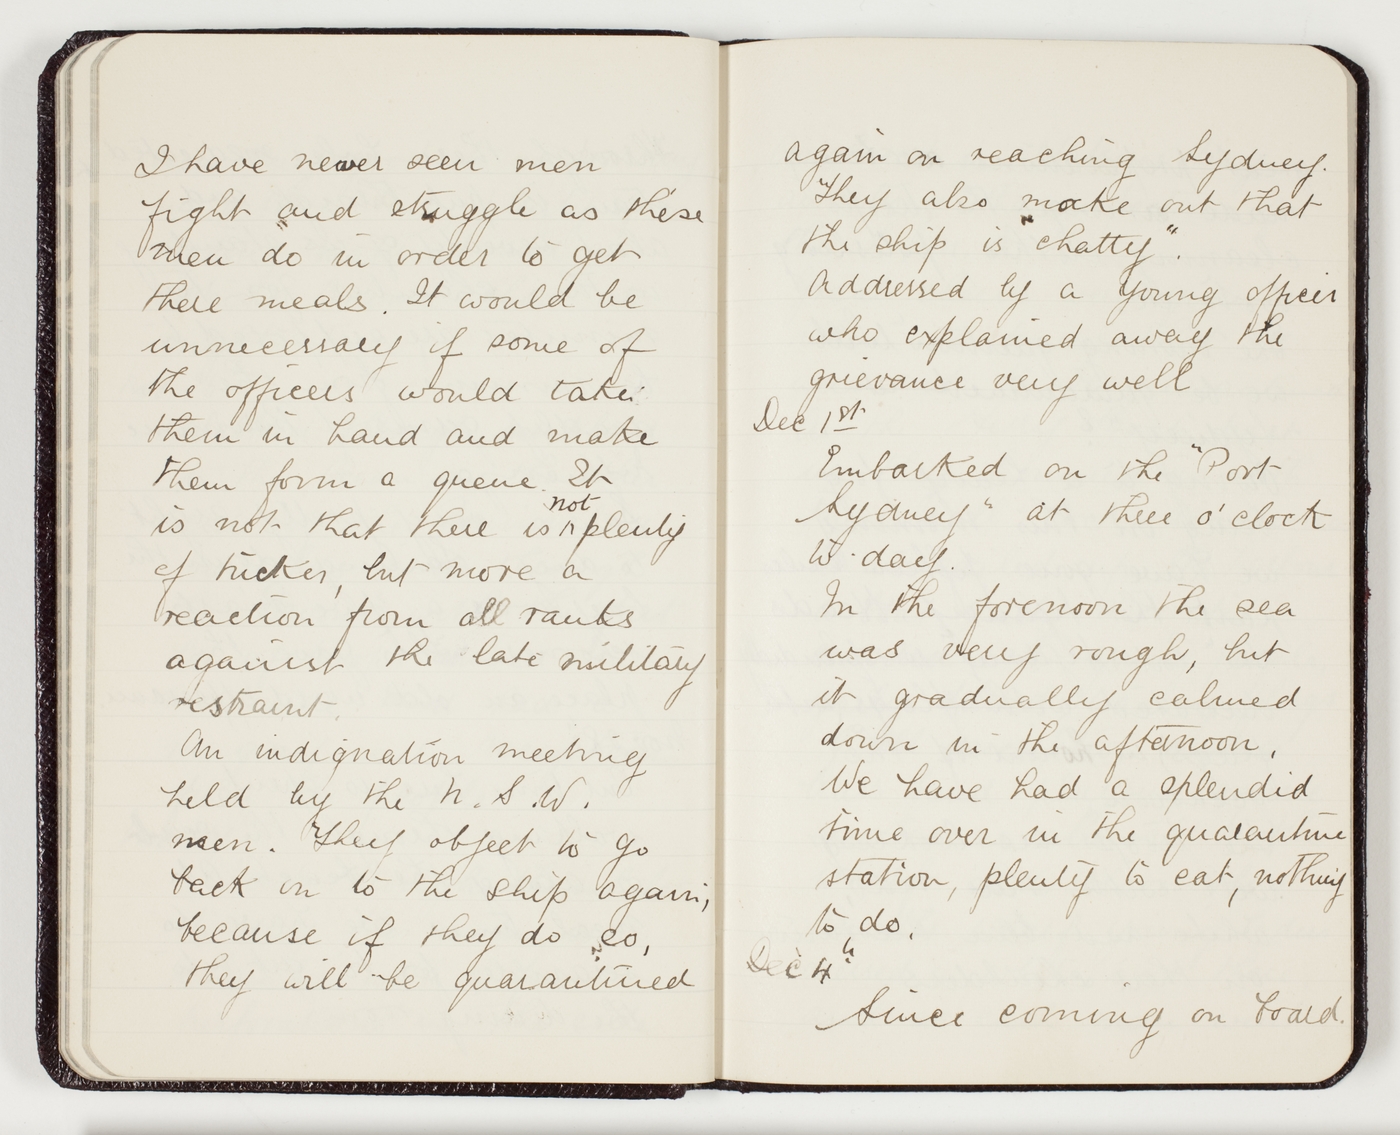 I have never seen men
fight and struggle as these
men do in order to get
there meals. It would be
unnecessary if some of
the officers would take
them in hand and make
them form a queue. It
is not that there is not plenty
of tucker, but more a
reaction from all ranks
against the late military
restraint.
An indignation meeting
held by the N.S.W.
men. They object to go
back on to the ship again,
because if they do so,
they will be quarantined
again on reaching Sydney.
They also make out that
the ship is "chatty".
Addressed by a young officer
who explained away the
grievance very well
Dec 1st
Embarked on the "Port
Sydney" at three o'clock
to-day.
In the forenoon the sea
was very rough, but
it gradually calmed
down in the afternoon.
We have had a splendid
time over in the quarantine
station, plenty to eat, nothing
to do.
Dec 4th
Since coming on board.